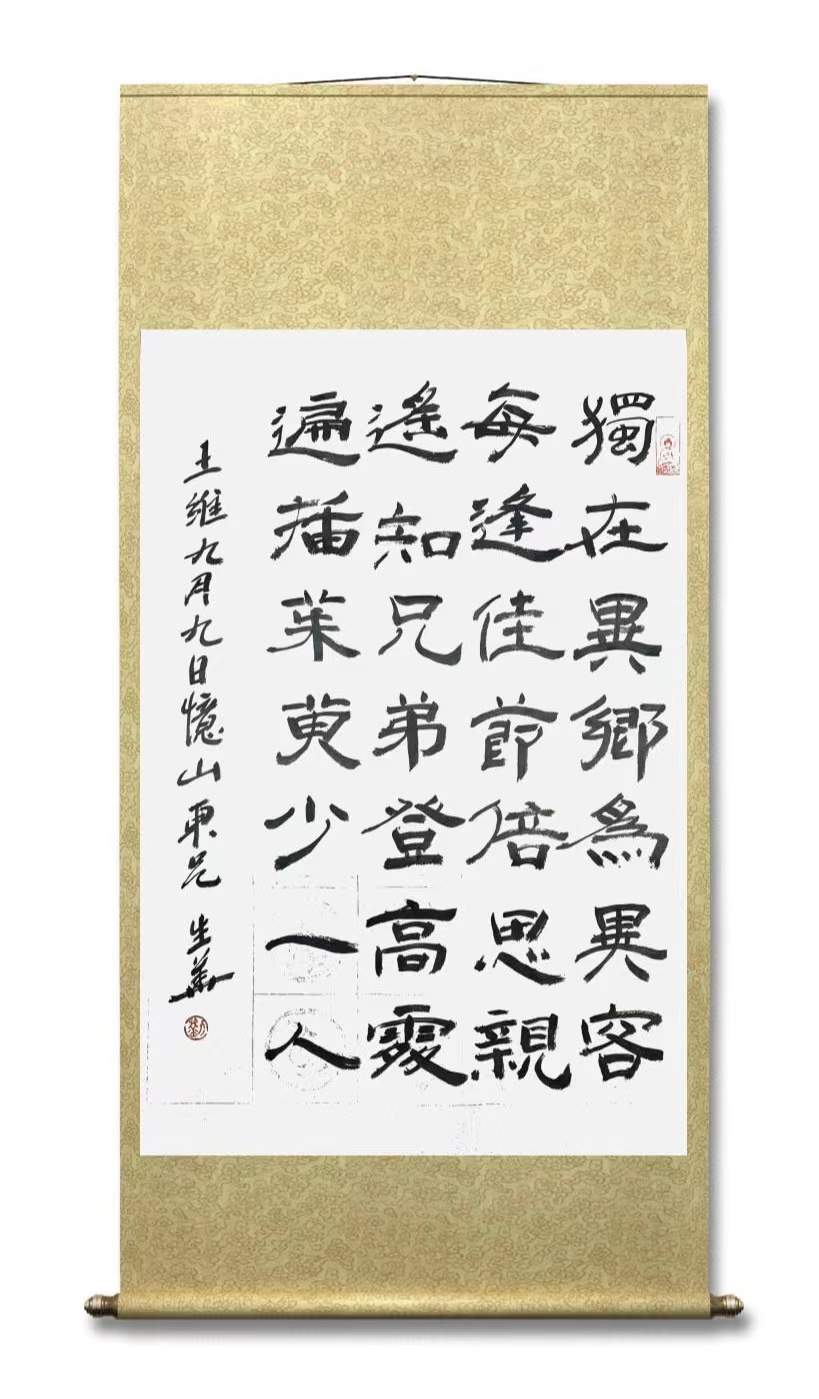 獨在異鄉為異客
每逢佳節倍思親
遙知兄弟登高處
遍插茱萸少一人
王維九月九日憶山東兄 生華